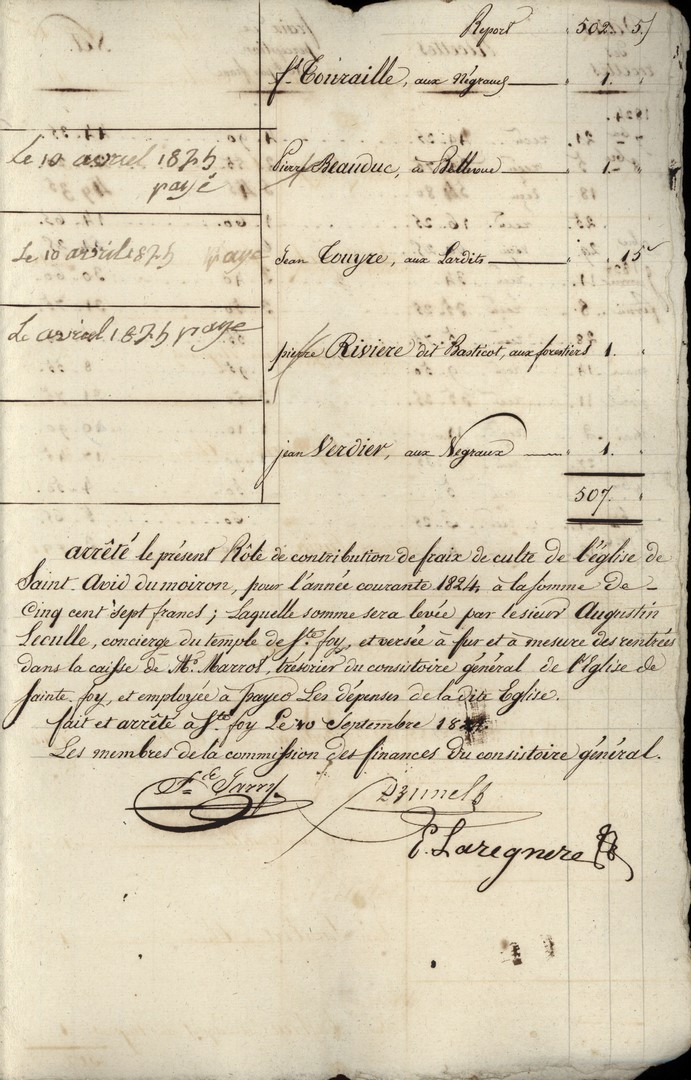 Report 502. 5
fs. Touraille, aux Négraux 1.
Le 10 avril 1825
payé
pierre Beauduc, à Bellevue 1.
Le 10 avril 1825 payé
Jean Touyre, aux Lardits 15
Le avril 1825 payé
pierre Riviere dit Basticot, aux forestiers 1.
jean Verdier, aux Négraux 1.
507.
arrêté le présent Rôle de contribution de fraix de culte de l'église de
Saint-Avid du moiron, pour l'année courante 1824 à la somme de
Cinq cent sept francs; Laquelle somme sera levée par le sieur Augustin
Leculle, concierge du temple de Ste. foy, et versée à fur et à mesure des rentrées
dans la caisse de Mr. Marrot, trésorier du consistoire général de l'Eglise de
Sainte-foy, et employée à payer Les dépenses de la dite Eglise.
fait et arrêté à Ste. foy Le 10 Septembre 1824.
Les membres de la commission des finances du consistoire général.
Jarry
E. Laregnere